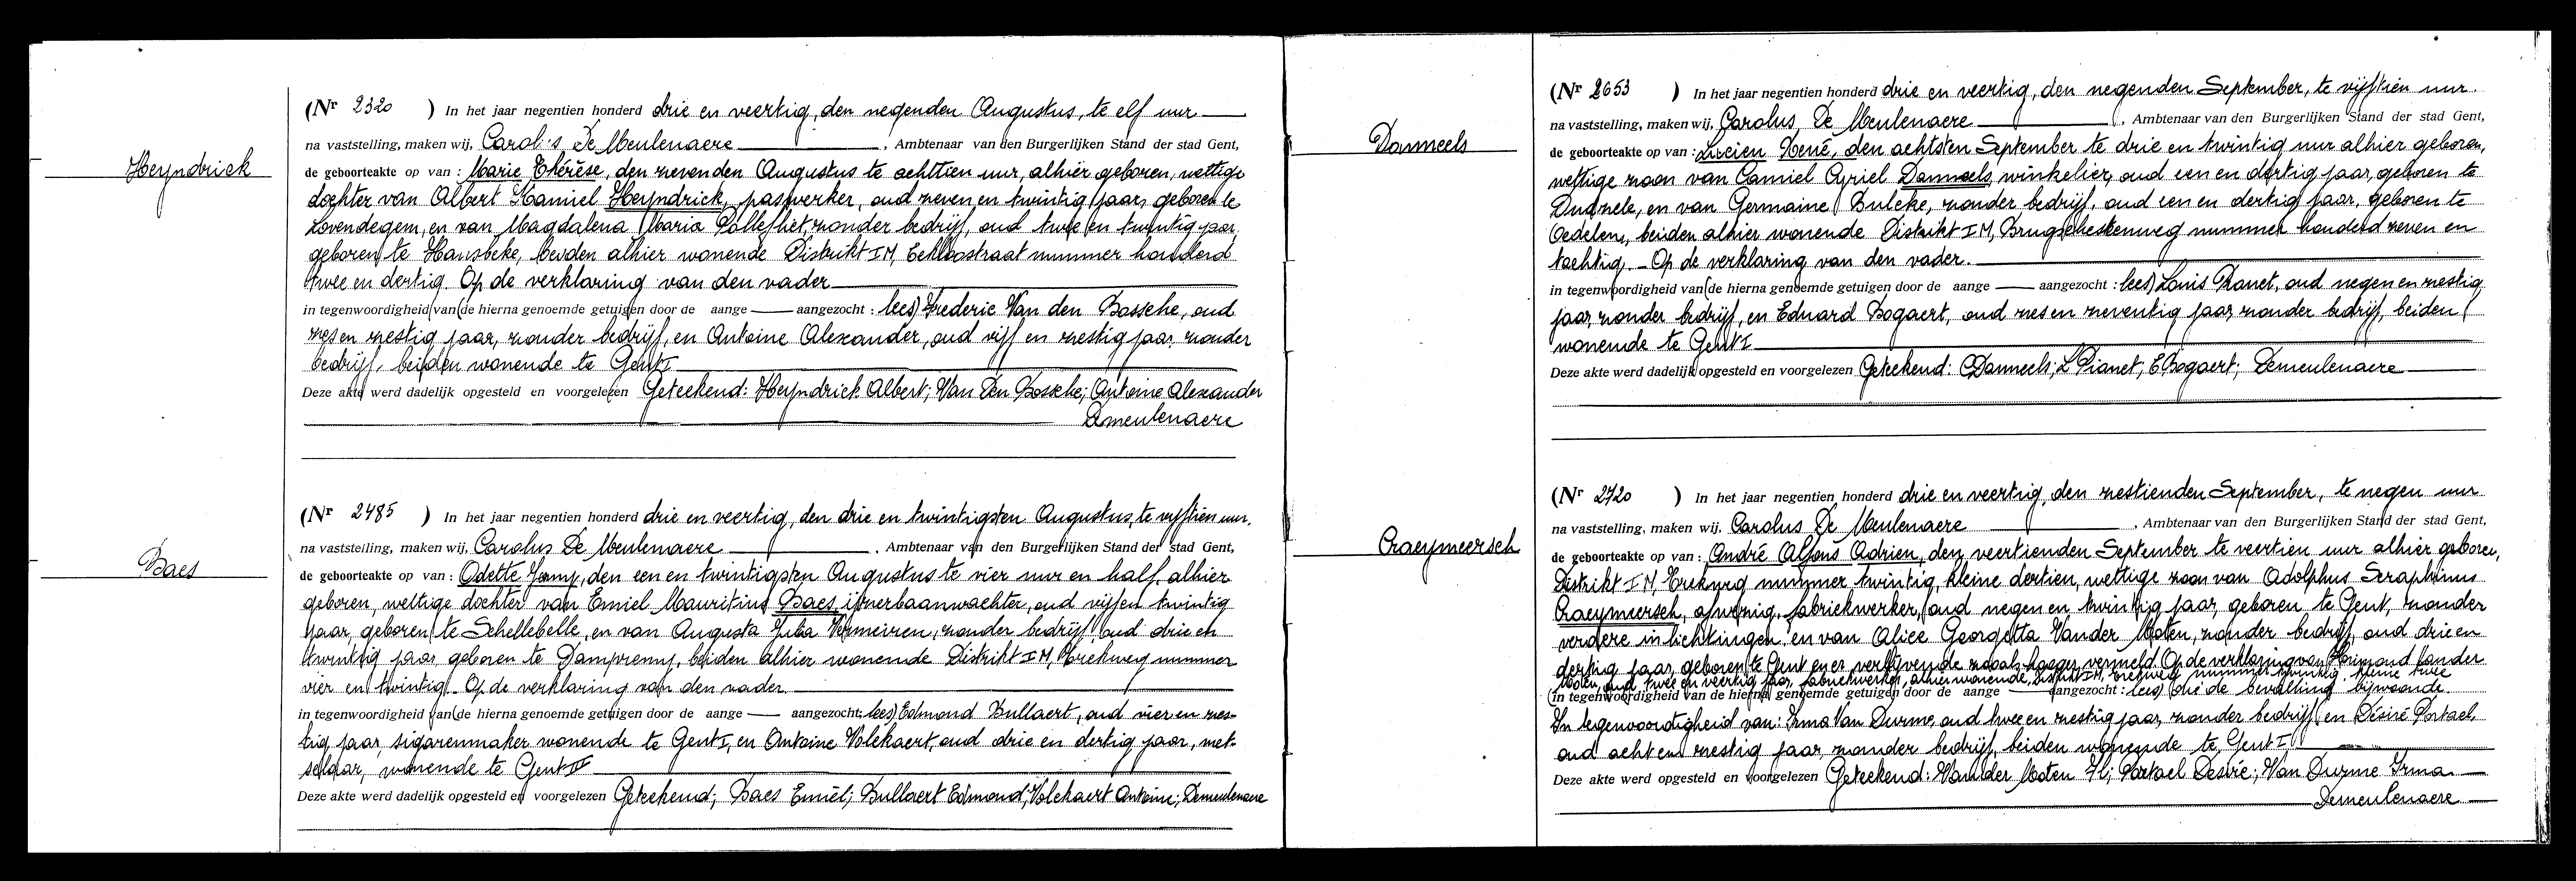 Heyndrick
(Nr 2320 ) In het jaar negentien honderd drie en veertig, den negenden Augustus, te elf uur
na vaststelling, maken wij, Carolus De Meulenaere, Ambtenaar van den Burgerlijken Stand der stad Gent,
de geboorteakte op van : Marie Thérèse, den zevenden Augustus te achttien uur, alhier geboren, wettige
dochter van Albert Kamiel Heyndrick, paswerker, oud zeven en twintig jaar, geboren te
Lovendegem, en van Magdalena Maria zonder bedrijf, oud twee en twintig jaar,
geboren te Hansbeke, beiden alhier wonende Distrikt IM, Eeklostraat nummer honderd
twee en dertig. Op de verklaring van den vader
in tegenwoordigheid van (de hierna genoemde getuigen door de aange — aangezocht : lees) Frederic Van den Bossche, oud
zes en zestig jaar, zonder bedrijf, en Antoine Alexander, oud vijf en zestig jaar, zonder
bedrijf, beiden wonende te Gent I
Deze akte werd dadelijk opgesteld en voorgelezen Geteekend: Heyndrick Albert; Van Den Bossche; Antoine Alexander
Demeulenaere
Baes
(Nr 2485 ) In het jaar negentien honderd drie en veertig, den drie en twintigsten Augustus, te vijftien uur.
na vaststelling, maken wij, Carolus De Meulenaere, Ambtenaar van den Burgerlijken Stand der stad Gent,
de geboorteakte op van : Odette Jenny, den een en twintigsten Augustus te vier uur en half, alhier
geboren, wettige dochter van Emiel Mauritius Baes, ijzerbaanwachter, oud vijf en twintig
jaar, geboren te Schellebelle, en van Augusta Julia Vermeiren, zonder bedrijf, oud drie en
twintig jaar, geboren te Dampremy, beiden alhier wonende Distrikt IM, nummer
vier en twintig. Op de verklaring van den vader
in tegenwoordigheid van (de hierna genoemde getuigen door de aange — aangezocht; lees) Edmond Bullaert, oud vier en zes-
tig jaar sigarenmaker wonende te Gent I, en Antoine Volckaert, oud drie en dertig jaar, met-
selaar, wonende te Gent
Deze akte werd dadelijk opgesteld en voorgelezen Geteekend; Baes Emiel; Bullaert Edmond; Volckaert Antoine; Demeulenaere
Danneels
(Nr 2653 ) In het jaar negentien honderd drie en veertig, den negenden September, te vijftien uur.
na vaststelling, maken wij, Carolus De Meulenaere, Ambtenaar van den Burgerlijken Stand der stad Gent,
de geboorteakte op van : Lucien René, den achtsten September te drie en twintig uur alhier geboren,
wettige zoon van Camiel Cyriel Danneels, winkelier, oud een en dertig jaar, geboren te
Dudzele, en van Germaine Bulcke, zonder bedrijf, oud een en dertig jaar, geboren te
Oedelem, beiden alhier wonende Distrikt IM, Brugschesteenweg nummer honderd zeven en
tachtig. - Op de verklaring van den vader.
in tegenwoordigheid van (de hierna genoemde getuigen door de aange — aangezocht : lees) Louis Pianet, oud negen en zestig
jaar, zonder bedrijf, en Eduard Bogaert, oud zes en zeventig jaar zonder bedrijf, beiden
wonende te Gent I
Deze akte werd dadelijk opgesteld en voorgelezen Geteekend: C Danneels; L Pianet; E Bogaert; Demeulenaere
Craeymeersch
(Nr 2720 ) In het jaar negentien honderd drie en veertig, den zestienden September, te negen uur
na vaststelling, maken wij, Carolus De Meulenaere, Ambtenaar van den Burgerlijken Stand der stad Gent,
de geboorteakte op van : André Alfons Adrien, den veertienden September te veertien uur alhier geboren,
Distrikt IM, nummer twintig, kleine dertien, wettige zoon van Adolphus Seraphinus
Craeymeersch, afwezig, fabriekwerker, oud negen en twintig jaar, geboren te Gent, zonder
verdere inlichtingen en van Alice Georgetta Vander Moten, zonder bedrijf, oud drie en
dertig jaar, geboren te Gent en er verblijvende zooals hooger vermeld. Op de verklaring van Vander
Moten, oud twee en veertig jaar, fabriekwerker, alhier wonende, Distrikt IM, nummer twintig, kleine twee
(in tegenwoordigheid van de hierna genoemde getuigen door de aange — aangezocht : lees) die de bevalling bijwoonde.
In tegenwoordigheid van: Irma Van Durme, oud twee en zestig jaar, zonder bedrijf, en Désiré Portael,
oud acht en zestig jaar, zonder bedrijf, beiden wonende te Gent I
Deze akte werd opgesteld en voorgelezen Geteekend: Van der Moten H; Portael Desiré; Van Durme Irma
Demeulenaere